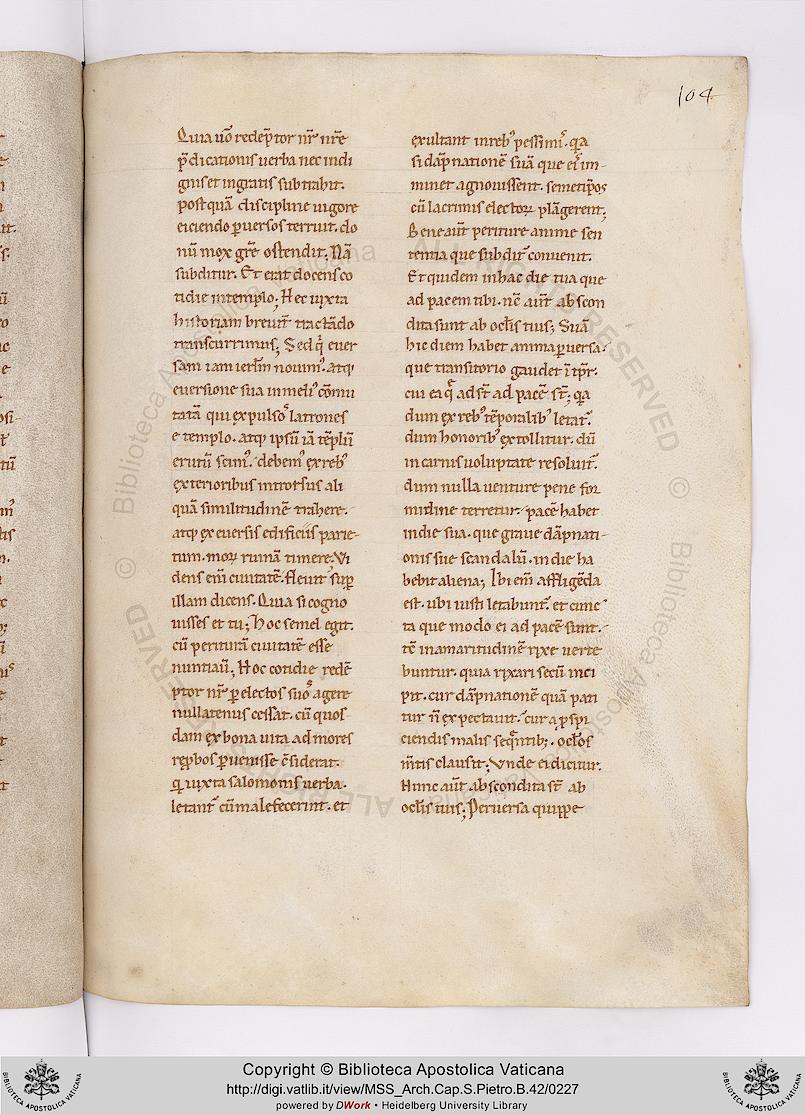 104
Quia uo᷃ redẽptor nr̃ nr̃e
p̃dicationis uerba nec indi
gnis et ingratis subtrahit.
postquã discipline uigore
eiciendo ꝑuersos terruit. do
nũ mox gr̃e ostendit. Nã
subditur. Et erat docens co
tidie in templo; Hec iuxta
historiam breuit̃ tractãdo
transcurrimus; Sed q̃ euer
sam iam ierl̃m nouim᷒. atq;
euersione sua in meli᷒ cõmu
tatã qui expulsos̃ latrones
e templo. atq; ipsũ iã tẽplũ
erutũ scim᷒. debem᷒ ex reb᷒
exterioribus introrsus ali
quã similitudinẽ trahere.
atq; ex euersis edificiis parie-
tum. morꝝ ruinã timere. Vi
dens em̃ ciuitatẽ. fleuit sup̃
illam dicens. Quia si cogno
uisses et tu; Hoc semel egit.
cũ periturã ciuitatẽ esse
nuntiauit̃; Hoc cotidie redẽ
ptor nr̃ ꝑ electos suos̃ agere
nullatenus cessat. cũ quos
dam ex bona uita ad mores
rep̃bos ꝑuenisse c̃siderat.
qͥ iuxta salomonis uerba.
letant᷒ cũ male fecerint. et
exultant in reb᷒ pessimis̃. qͣa
si dãpnationẽ suã que eis̃ im-
minet agnouissent. semetip̃os
cũ lacrimis electorꝝ plãgerent;
Bene aut̃ periture anime sen
tentia que subdit᷒ conuenit.
Et quidem in hac die tua que
ad pacem tibi. nc̃ aut̃ abscon
dita sunt ab ocl̃is tuis; Suã
hic diem habet anima ꝑuersa.
que transitorio gaudet ĩ tp̃r.
cui ea q̃ adst̃ ad pacẽ st̃; qͣa
dum ex reb᷒ tẽporalib᷒ letat᷒.
dum honorib᷒ extollitur. dũ
in carnis uoluptate resoluit᷒.
dum nulla uenture pene for
midine terretur. pacẽ habet
in die sua. que graue dãpnati-
onis sue scandalũ. in die ha
bebit aliena; Ibi em̃ affligẽda
est. ubi iusti letabunt᷒. et cunc
ta que modo ei ad pacẽ sunt.
tc̃ in amaritudinẽ rixe uerte
buntur. quia rixari secũ inci
pit. cur dãpnationẽ quã pati
tur n̄ expectauit. cur a ꝑspi
ciendis malis seq̃ntib;. ocl̃os
m̃tis clausit; Vnde ei dicitur.
Nunc aut̃ abscondita st̃ ab
ocl̃is tuis; Peruersa quippe
© Biblioteca Apostolica Vaticana ALL RIGHTS RESERVED © Biblioteca Apostolica Vaticana ALL RIGHTS RESERVED
BIBLIOTECA APOSTOLICA VATICANA
Copyright © Biblioteca Apostolica Vaticana
http://digi.vatlib.it/view/MSS_Arch.Cap.S.Pietro.B.42/0227
powered by DWork • Heidelberg University Library
BIBLIOTECA APOSTOLICA VATICANA